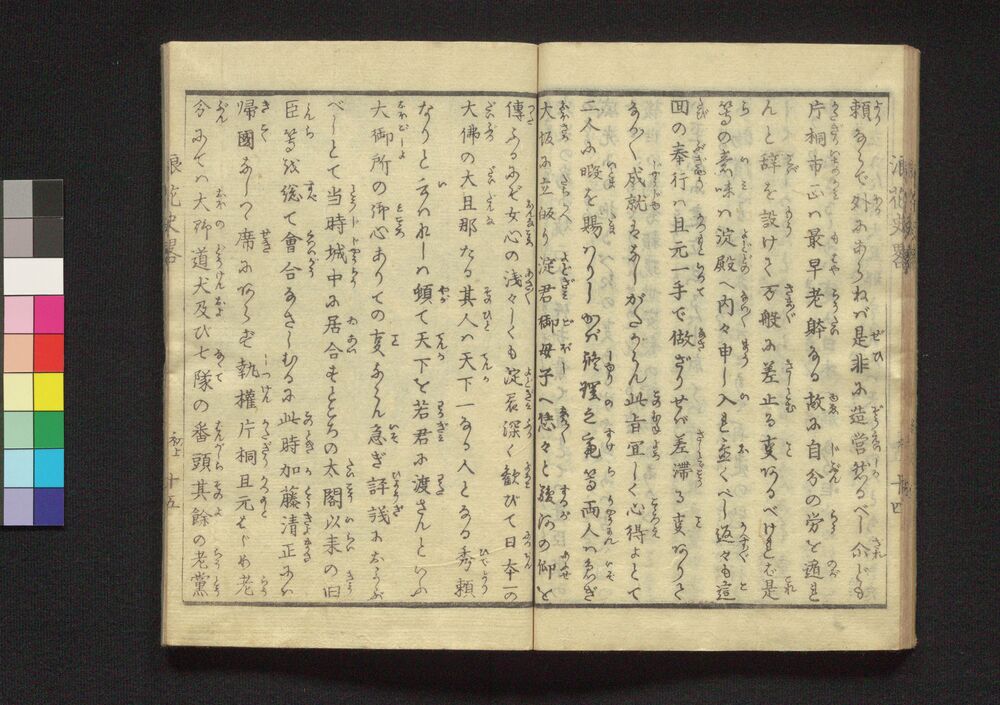 頼ならで外にあらねバ是非に造営然るべし尒ども
片桐市正ハ最早老躰なる故に自分の労を遁れ
んと辞を設けて万般に差止る事あるべけれど是
等の意味ハ淀殿へ内々申し入れ置くべし返々も這
回の奉行ハ且元一手で做ざりせバ差滞る事ありて
なかなか成就はなしがたからん此旨宜しく心得よとて
二人に暇を賜ハりしかバ
大坂に立皈り淀君御母子へ悠々と駿河の仰を
傳ふるにぞ女心の浅々しくも淀君深く歓びて日本一の
大佛の大旦那たる其人ハ天下一なる人となる秀頼
なりと云ハれしハ頓て天下を若君に渡さんといふ
大御所の御心ありての事ならん急ぎ評議におよぶ
べしとて当時城中に居合もとちの太閤以来の旧
臣等を総て會合なさしむるに此時加藤清正にハ
帰國ありて席にあらず執權片桐且元はじめ老
分にてハ大野道犬及び七隊の番頭其餘の老黨
浪花史畧
初上
十五
浪花史畧
十四